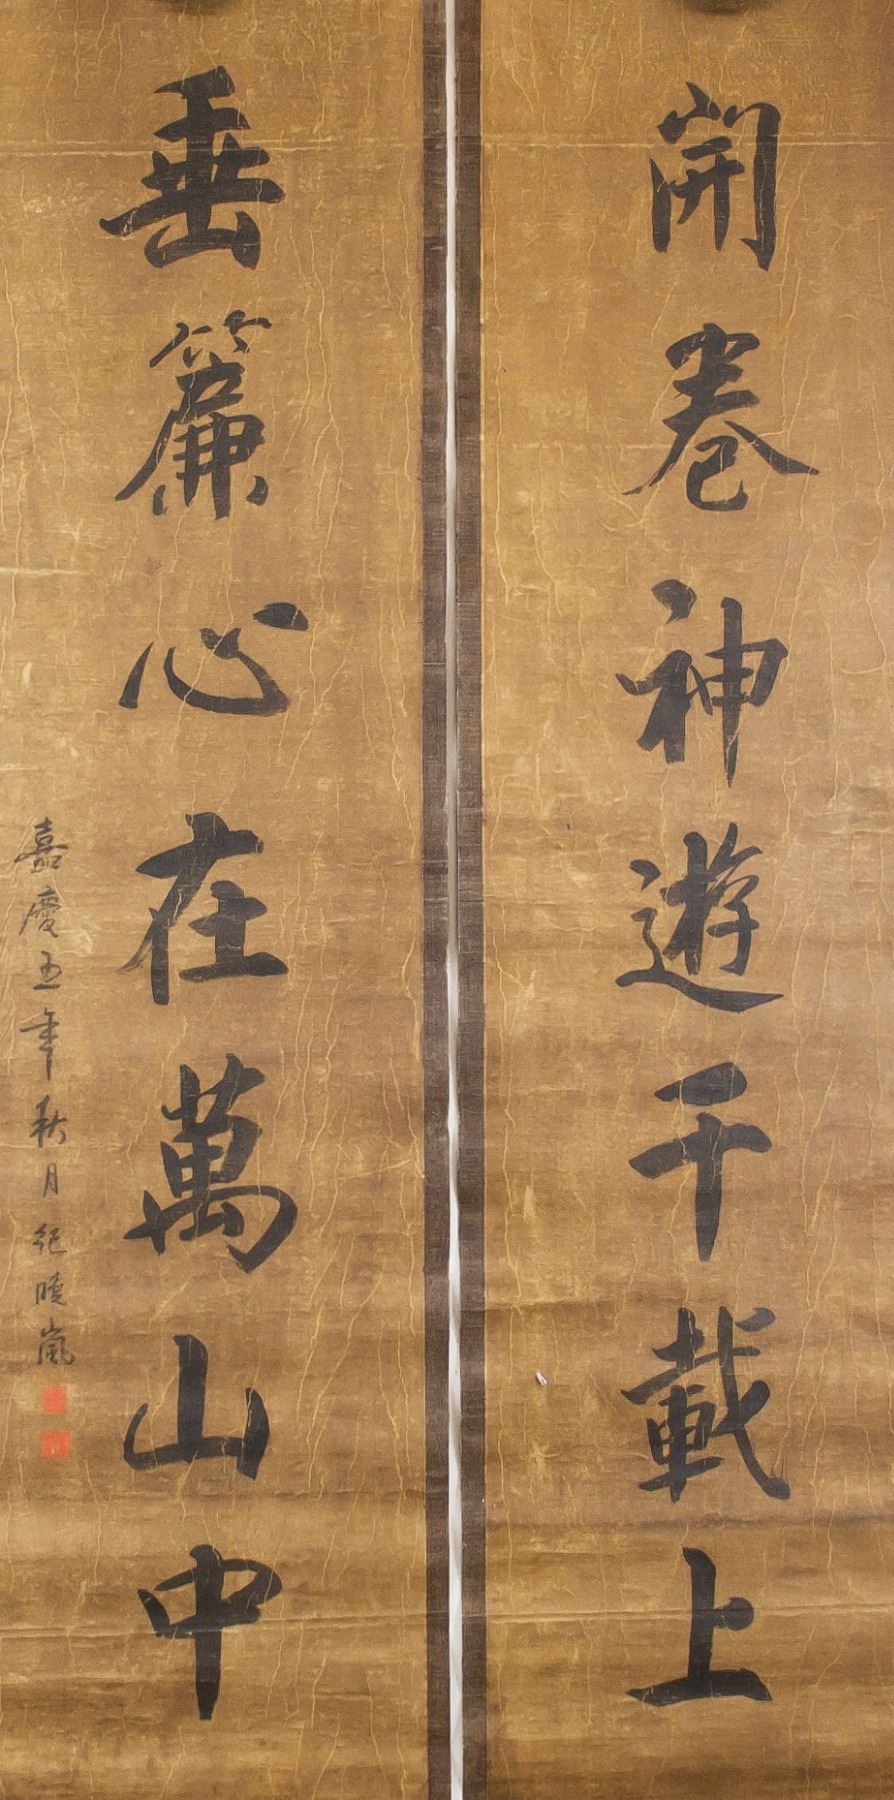 開卷神遊千載上
垂簾心在萬山中
嘉慶五年秋月紀曉嵐